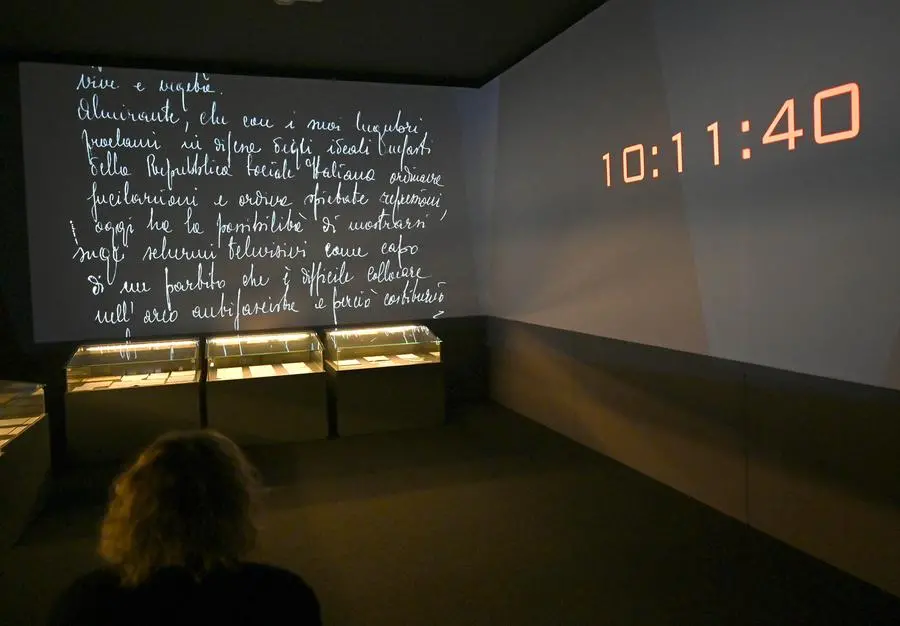 vive e vegeta.
Almirante, che con i suoi lugubri
proclami in difesa degli ideali nefasti
della Repubblica Sociale Italiana ordinava
fucilazioni e ordiva spietate repressioni,
oggi ha la possibilità di mostrarsi
sugli schermi televisivi come capo
di un partito che è difficile collocare
nell' arco antifascista e perciò costituzio
10:11:40